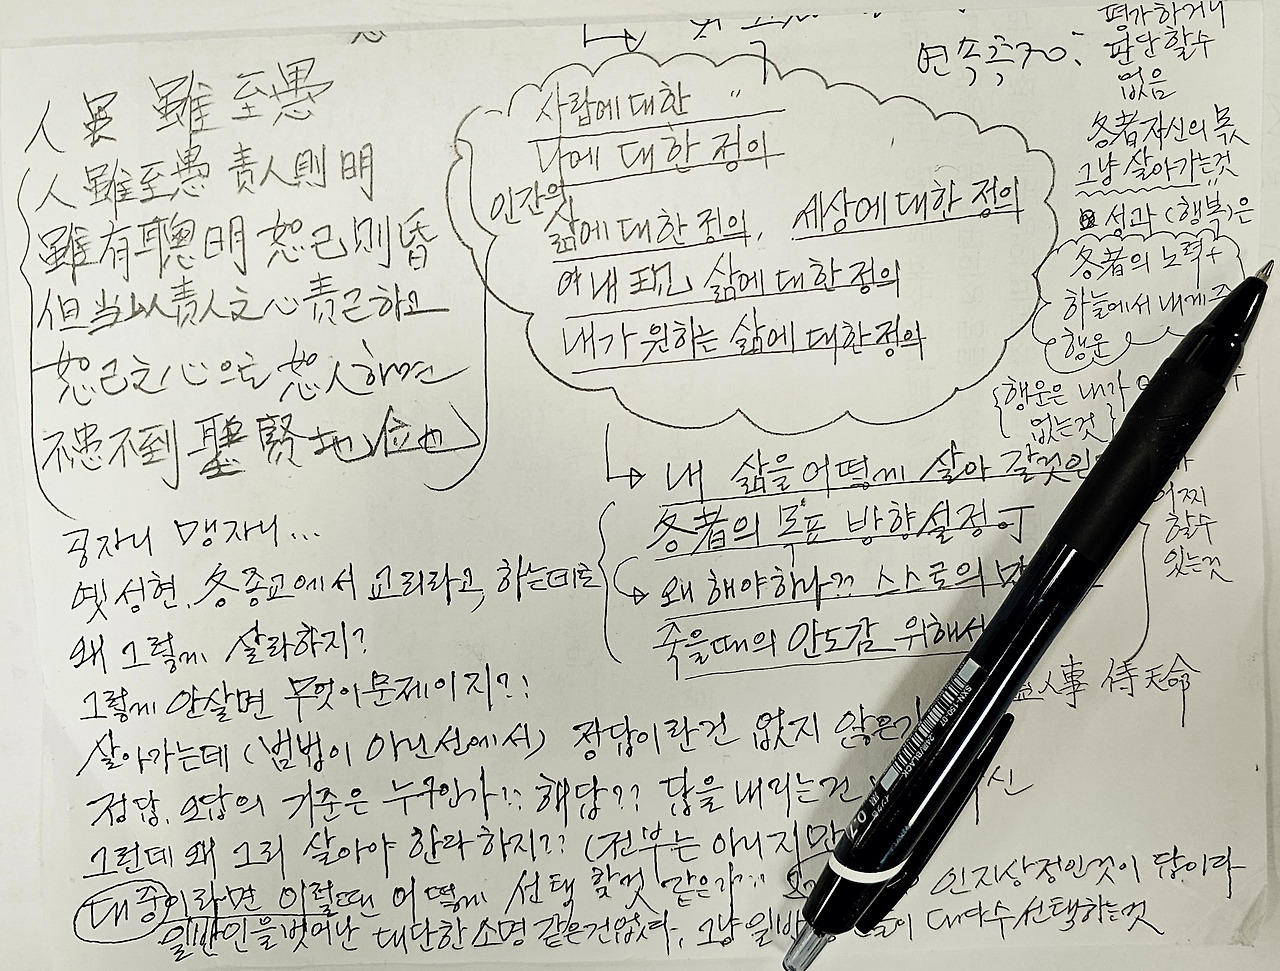 人 虽 雖 至愚
人 雖至愚 責人則明
雖有聰明 恕己則昏
但当以責人之心 責己하고
恕己之心으로 恕人하면
不患不到 聖賢地位也
공자니 맹자니...
옛 성현, 各종교에서 교리라고, 하는데로
왜 그렇게 살라하지?
그렇게 안살면 무엇이 문제이지?!
살아가는데 (범법이 아닌선에서) 정답이란건 없지 않은가
정답, 오답의 기준은 누구인가!! 해답?? 답을 내리는건
그런데 왜 그리 살아야 한다하지?? (전부는 아니지만
대중이라면 이럴때 어떻게 선택 할것 같은가?! 인지상정인것이 답이다
일반인을 벗어난 대단한 소명 같은건없다, 그냥 대다수 선택하는것
사람에 대한
나에 대한 정의
인간의
삶에 대한 정의, 세상에 대한 정의
여내 표현 삶에 대한 정의
내가 원하는 삶에 대한 정의
내 삶을 어떻게 살아 갈것인
各者의 목표 방향설정
왜 해야하나?? 스스로의
죽을때의 안도감 위해서
人事 待天命
연속극70:
평가하거나
판단할수
없음
各者 자신의 몫
그냥 살아가는것
성과 (행복)은
各者의 노력+
하늘에서 내게
행운
행운은 내가
없는것
어찌
할수
있는것
0.7